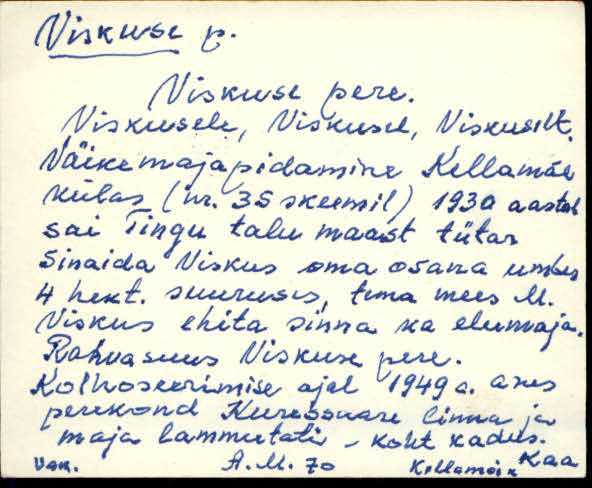 Viskuse p.
Viskuse pere.
Viskusele, Viskusel, Viskuselt.
Väikemajapidamine Kellamäe
külas (nr. 35 skeemil) 1930 aastal
sai Tingu talu maast tütar
Sinaida Viskus oma osana umbes
4 hekt. suuruses, tema mees M.
Viskus ehita sinna ka elumaja.
Rahvasuus Viskuse pere.
Kolhoseerimise ajal 1949 a. asus
perekond Kuressaare linna ja
maja lammutati - koht kadus.
A. M. 70 Kellamäe Kaa